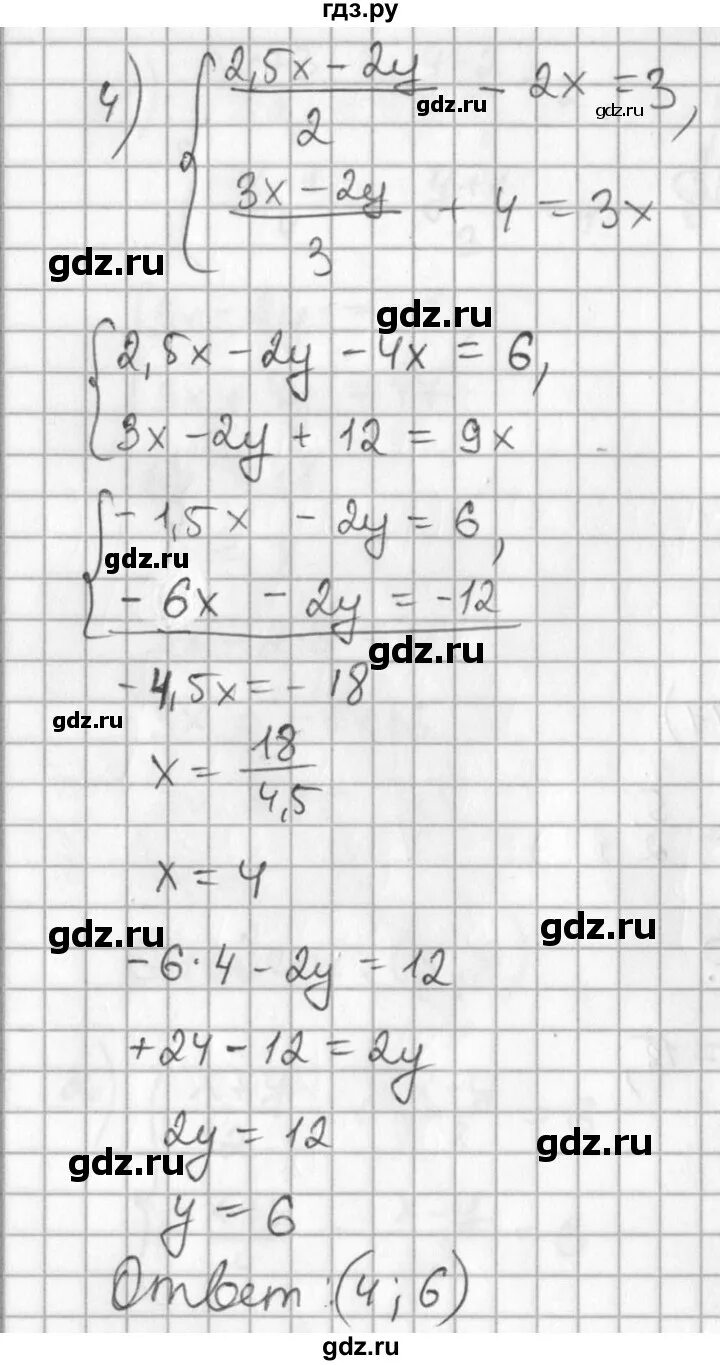 гдз.ру
4) { (2,5x - 2y)/2 - 2x = 3,
gdz.ru gdz.ru
(3x - 2y)/3 + 4 = 3x
gdz.ru
gdz.ru
{ 2,5x - 2y - 4x = 6,
3x - 2y + 12 = 9x
{ -1,5x - 2y = 6,
gdz.ru
- 6x - 2y = -12
gdz.ru
-4,5x = - 18
gdz.ru
x = 18/4,5
x = 4
gdz.ru gdz.ru
-6·4 - 2y = 12
+24 - 12 = 2y
2y = 12
gdz.ru gdz.ru
y = 6
Ответ: (4; 6)
gdz.ru